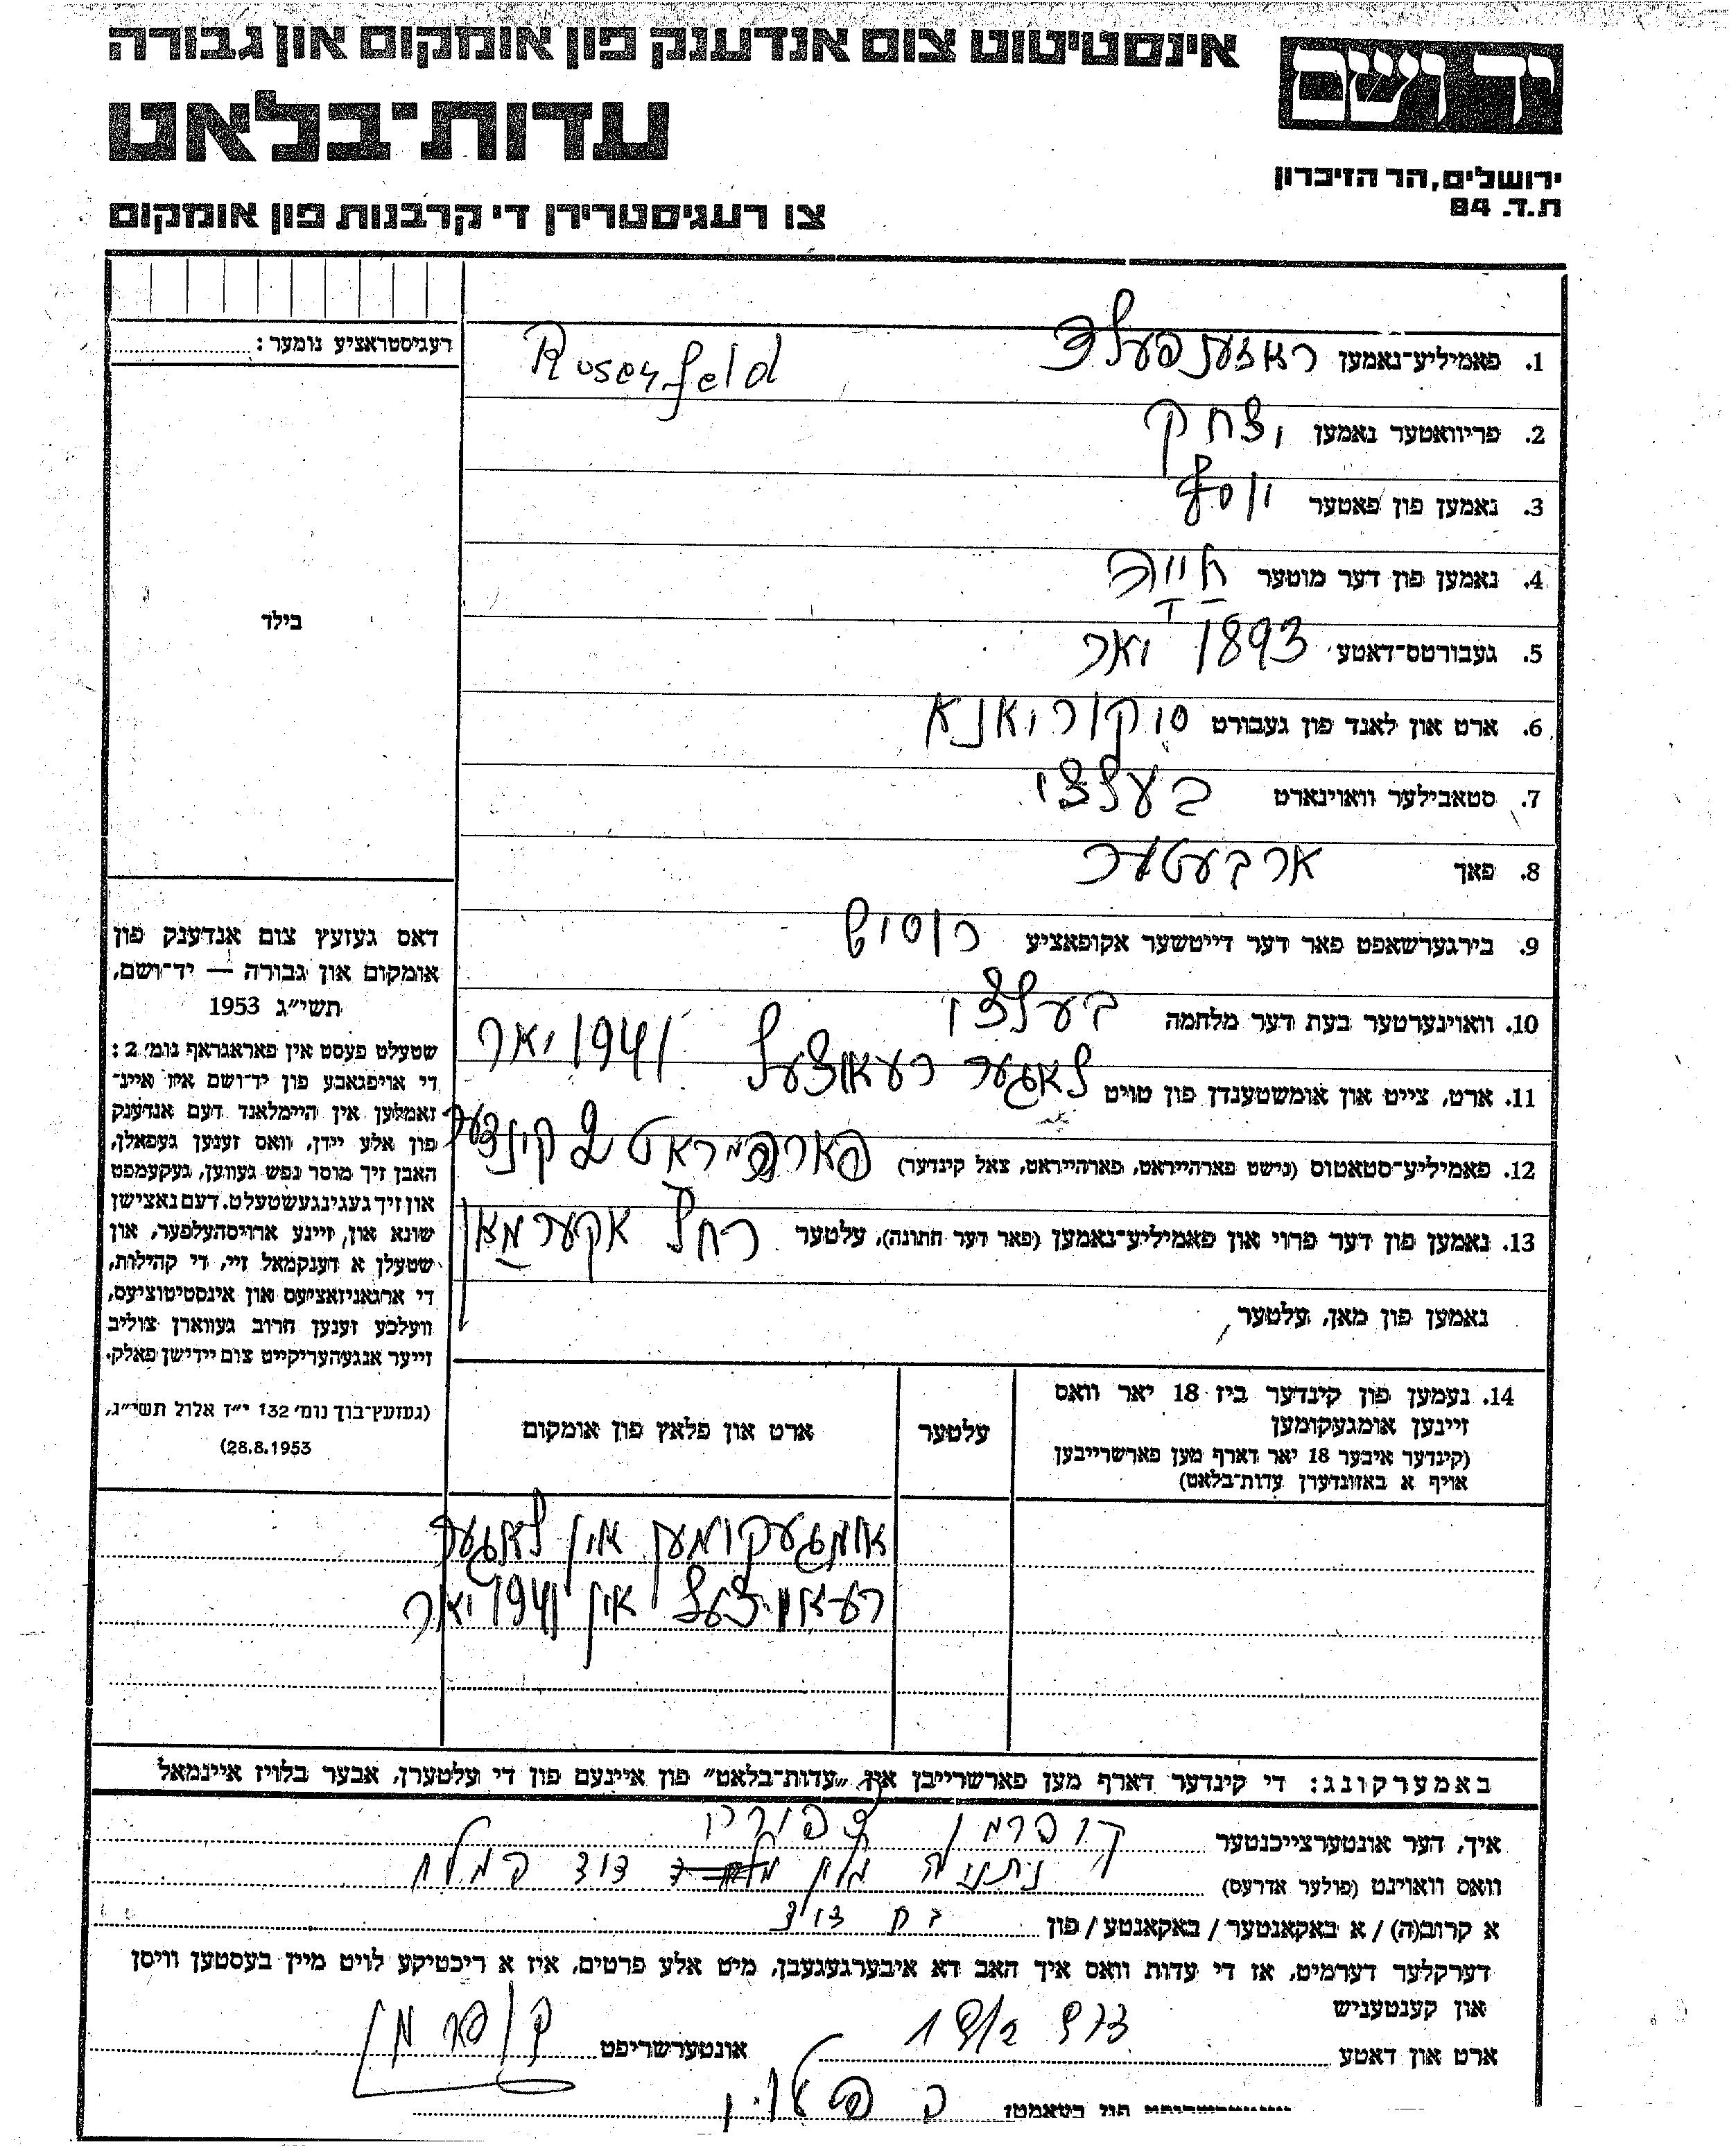 אינסטיטוט צום אנדענק פון אומקום און גבורה
יד ושם
עדות־בלאט
ירושלים, הר הזיכרון
ת.ד. 84
צו רעגיסטרירן די קרבנות פון אומקום
רעגיסטראציע נומער:
1. פאמיליע־נאמען ראזענפעלד Rosenfeld
2. פריוואטער נאמען יצחק
3. נאמען פון פאטער יוסף
4. נאמען פון דער מוטער חייה
5. געבורטס־דאטע 1893 יאר
6. ארט און לאנד פון געבורט סוקוריאנא
7. סטאבילער וואוינארט בעלצי
8. פאך ארבעטער
9. בירגערשאפט פאר דער דייטשער אקופאציע רוסיש
10. וואוינערטער בעת דער מלחמה בעלצי
11. ארט, צייט און אומשטענדן פון טויט לאגער רעאוצעל 1941 יאר
12. פאמיליע־סטאטוס (נישט פארהייראט, פארהייראט, צאל קינדער) קינדער
13. נאמען פון דער פרוי און פאמיליע־נאמען (פאר דער חתונה), עלטער רחל אקערמאן
נאמען פון מאן, עלטער
בילד
דאס געזעץ צום אנדענק פון
אומקום און גבורה — יד־ושם,
תשי״ג 1953
שטעלט פעסט אין פאראגראף נומ׳ 2:
די אויפגאבע פון יד־ושם איז איינ־
זאמלען אין היימלאנד דעם אנדענק
פון אלע יידן, וואס זענען געפאלן,
האבן זיך מוסר נפש געווען, געקעמפט
און זיך געגינגעשטעלט. דעם נאצישן
שונא און זיינע ארויסהעלפער, און
שטעלן א דענקמאל זיי, די קהילות,
די ארגאניזאציעס און אינסטיטוציעס,
וועלכע זענען חרוב געווארן צוליב
זייער אנגעהעריקייט צום יידישן פאלק.
(געזעץ־בוך נומ׳ 132 י״ז אלול תשי״ג,
28.8.1953)
14. נעמען פון קינדער ביז 18 יאר וואס
זיינען אומגעקומען
(קינדער איבער 18 יאר דארף מען פארשרייבן
אויף א באזונדערן עדות־בלאט)
עלטער
ארט און פלאץ פון אומקום
אומגעקומען אין לאגער
רעאוצעל אין 1941 יאר
באמערקונג: די קינדער דארף מען פארשרייבן אין „עדות־בלאט״ פון איינעם פון די עלטערן, אבער בלויז איינמאל
איך, דער אונטערצייכנטער קופרמן צפורה
וואס וואוינט (פולער אדרעס) נתניה מלון דוד המלך
א קרוב(ה) / א באקאנטער / באקאנטע / פון בת דוד
דערקלער דערמיט, אז די עדות וואס איך האב דא איבערגעגעבן, מיט אלע פרטים, איז א ריכטיקע לויט מיין בעסטען וויסן
און קענטעניש
ארט און דאטע אונטערשריפט קופרמן